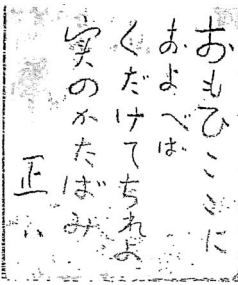 おもひこゝに
およべば
くだけてちれよ
実のかたばみ
正一